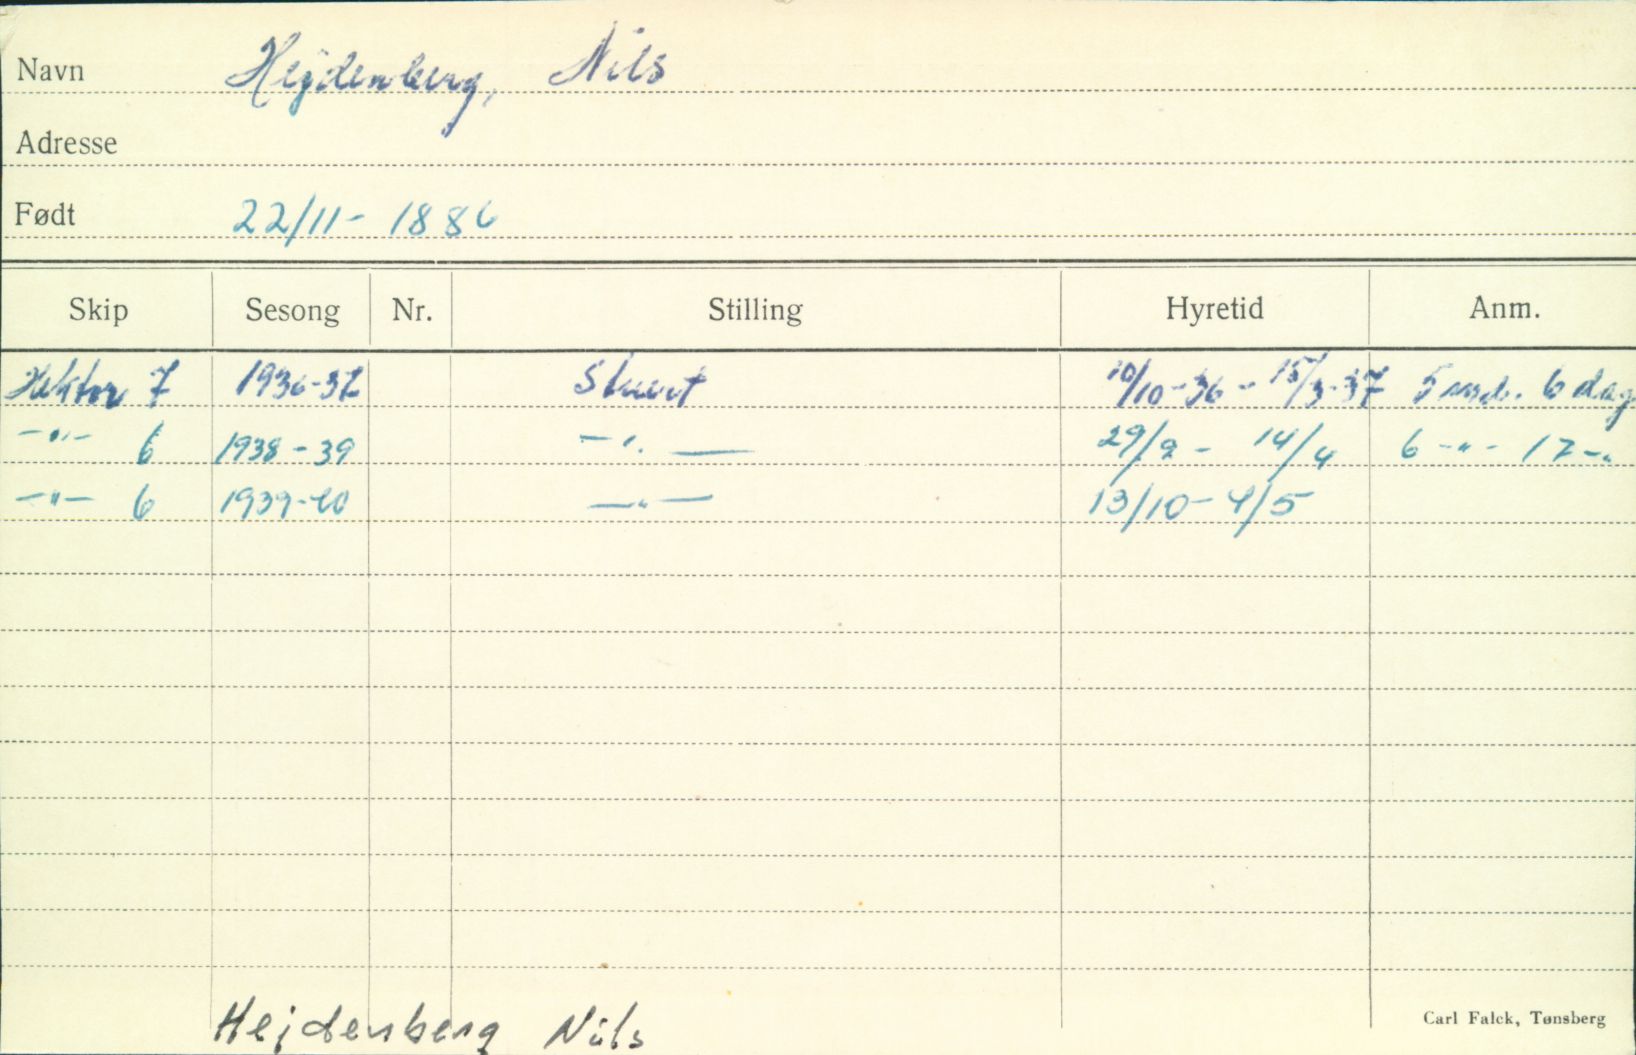 Navn Hejdenberg, Nils
Adresse
Født 22/11 - 1886
Skip Sesong Nr. Stilling Hyretid Anm.
Hektor 7 1936-37 Stuert 10/10-36 - 15/3-37 5 md. 6 dag
-"- 6 1938-39 -"- 29/9 - 14/4 6 -"- 17 -"-
-"- 6 1939-40 -"- 13/10 - 4/5
Hejdenberg Nils
Carl Falck, Tønsberg